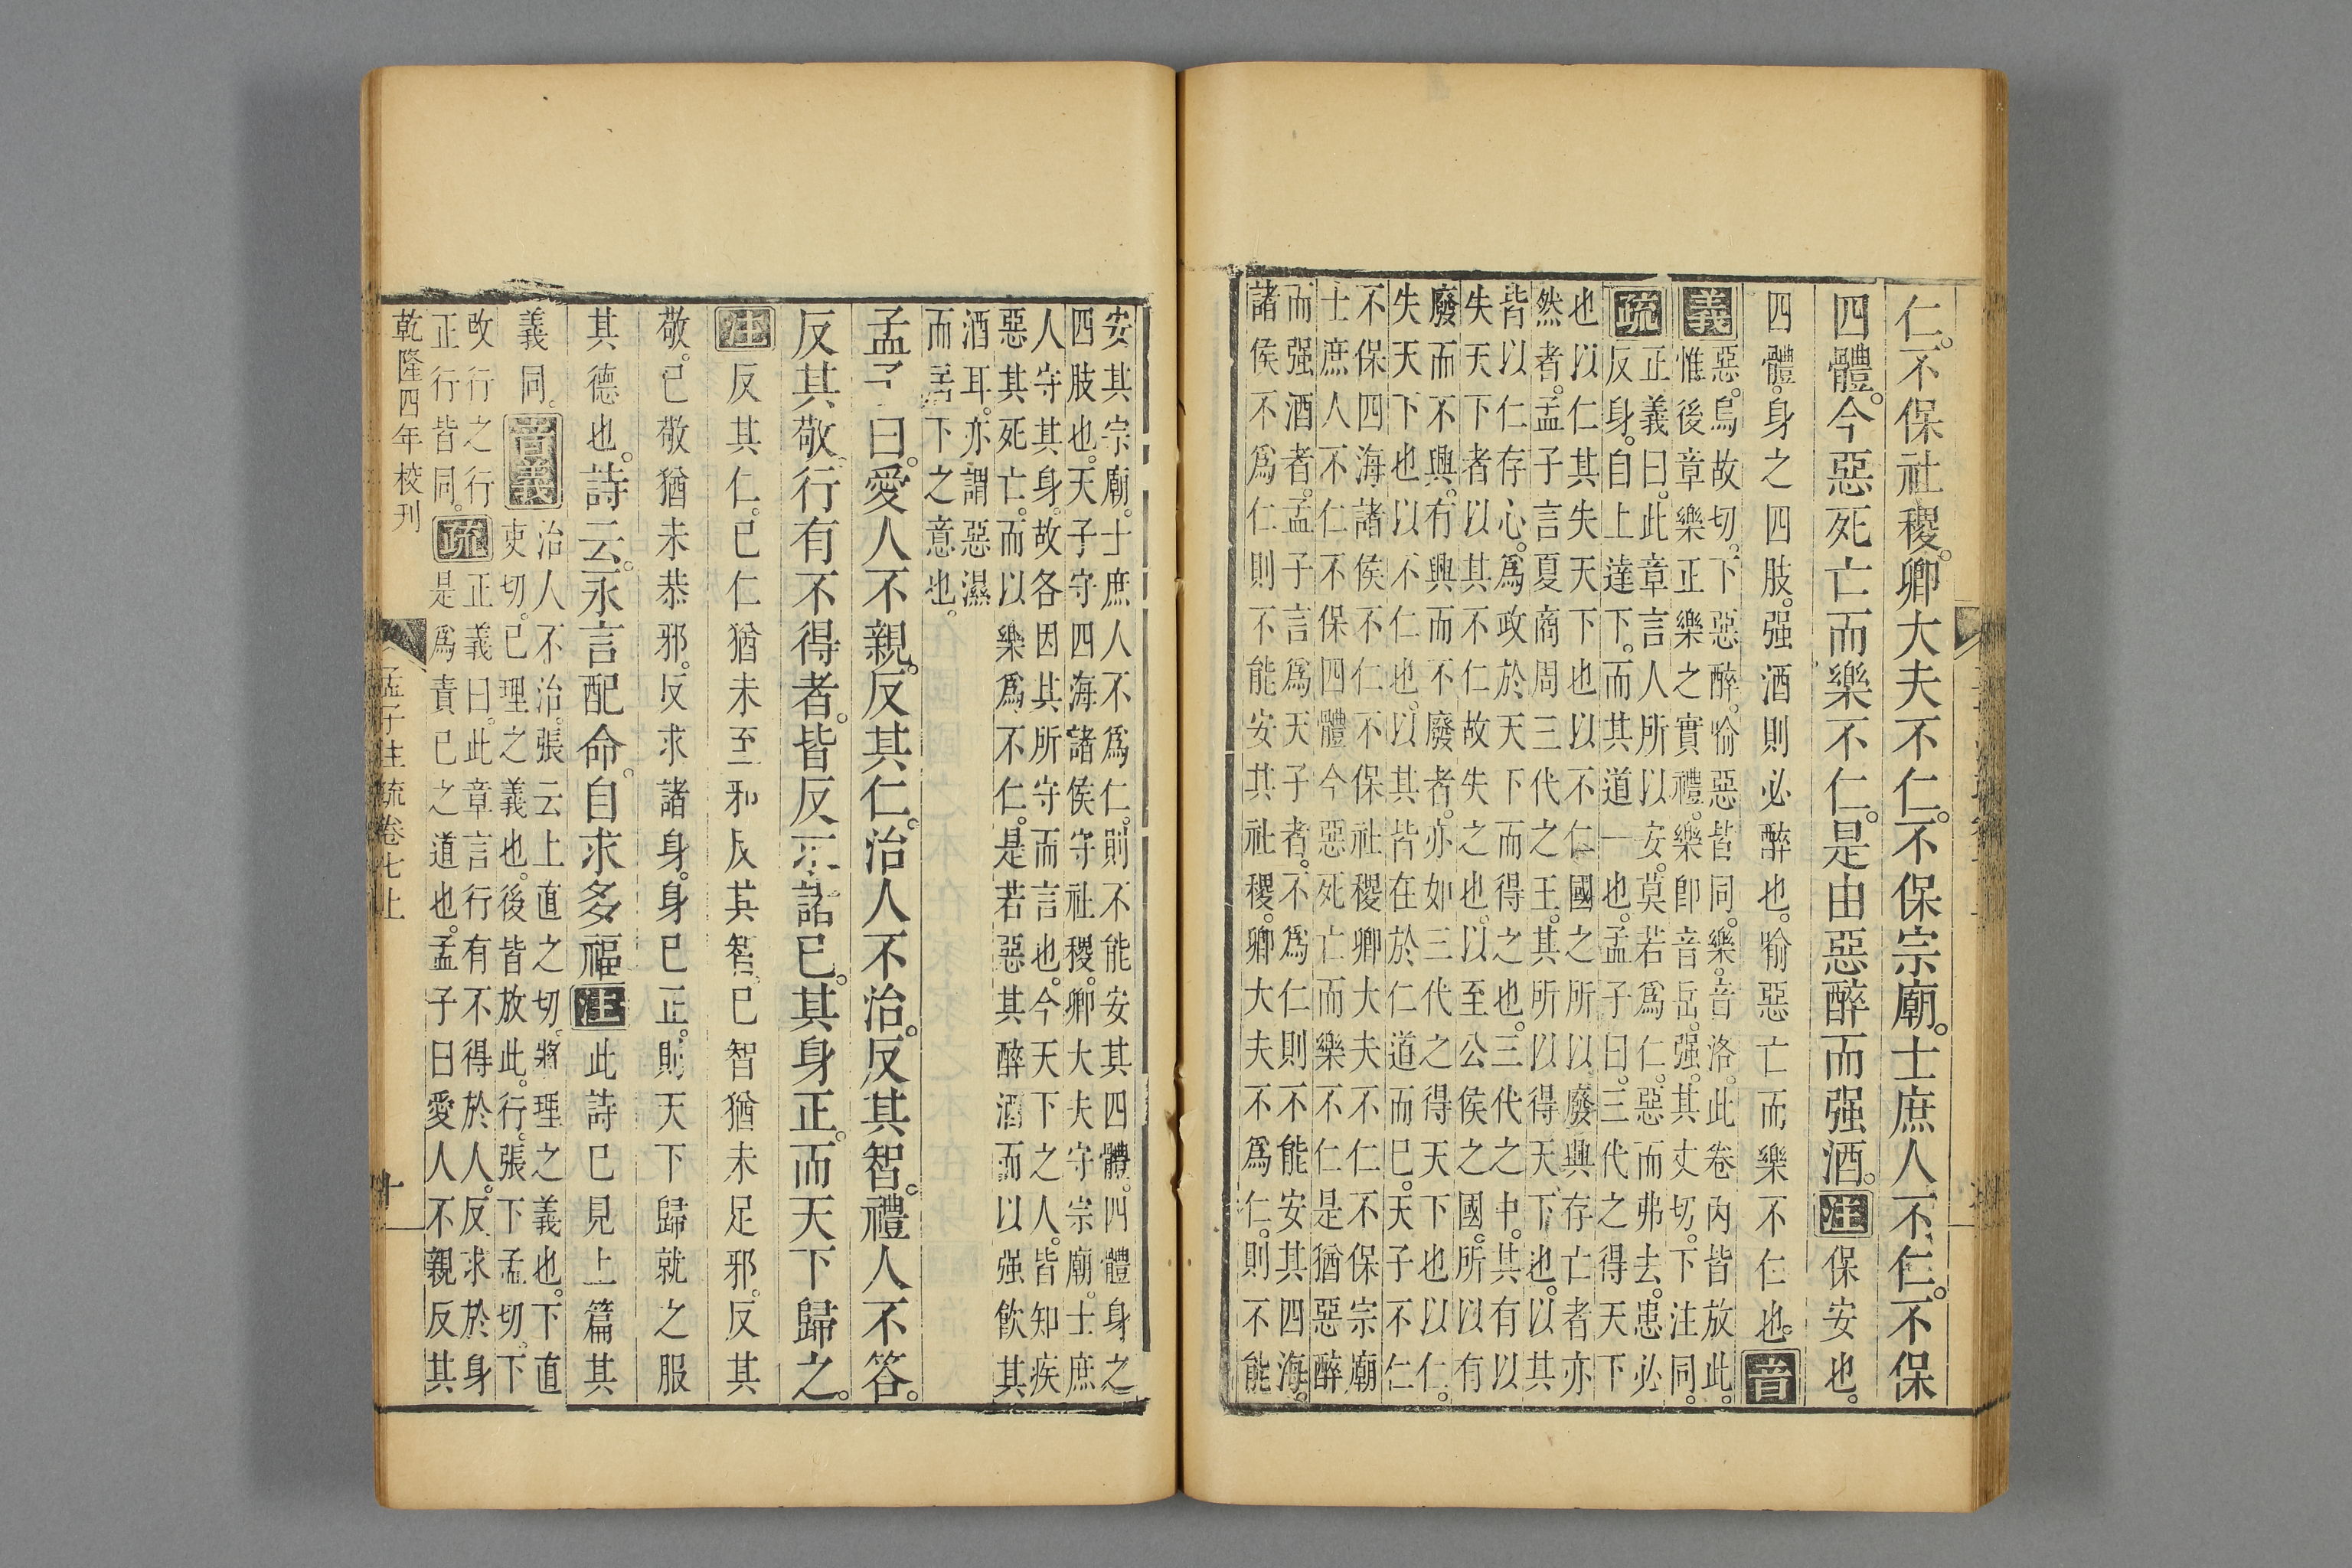 仁。不保社稷。卿大夫不仁。不保宗廟。士庶人不仁。不保
四體。今惡死亡而樂不仁。是由惡醉而强酒。注保安也。
四體。身之四肢。强酒則必醉也。喻惡亡而樂不仁也。音
義惡。烏故切。下惡醉。喻惡皆同。樂。音洛。此卷內皆放此。
惟後章樂正樂之實禮。樂卽音岳。强。其丈切。下注同。
疏正義曰。此章言人所以安。莫若爲仁。惡而弗去。患必
反身。自上達下。而其道一也。孟子曰。三代之得天下
也以仁其失天下也以不仁國之所以廢興存亡者亦
然者。孟子言夏商周三代之王。其所以得天下也。以其
皆以仁存心。爲政於天下而得之也。三代之中。其有以
失天下者以其不仁故失之也。以至公侯之國。所以有
廢而不興。有興而不廢者。亦如三代之得天下也以仁。
失天下也以不仁也。以其皆在於仁道而巳。天子不仁
不保四海諸侯不仁不保社稷卿大夫不仁不保宗廟
士庶人不仁不保四體今惡死亡而樂不仁是猶惡醉
而强酒者。孟子言爲天子者。不爲仁則不能安其四海。
諸侯不爲仁則不能安其社稷。卿大夫不爲仁。則不能
安其宗廟。士庶人不爲仁。則不能安其四體。四體身之
四肢也。天子守四海諸侯守社稷。卿大夫守宗廟。士庶
人守其身。故各因其所守而言也。今天下之人。皆知疾
惡其死亡。而以樂爲不仁。是若惡其醉酒而以强飲其
酒耳。亦謂惡濕
而居下之意也。
孟子曰。愛人不親。反其仁。治人不治。反其智。禮人不答。
反其敬。行有不得者。皆反求諸已。其身正。而天下歸之。
注反其仁。已仁猶未至邪反其智。已智猶未足邪。反其
敬。已敬猶未恭邪。反求諸身。身巳正。則天下歸就之服
其德也。詩云。永言配命。自求多福注此詩巳見上篇其
義同。音義治人不治。張云上直之切。將理之義也。下直
吏切。已理之義也。後皆放此。行。張下孟切。下
攺行之行疏正義曰。此章言行有不得於人。反求於身
正行皆同。是爲責已之道也。孟子曰愛人不親反其
乾隆四年校刊
孟子注疏卷七上
十